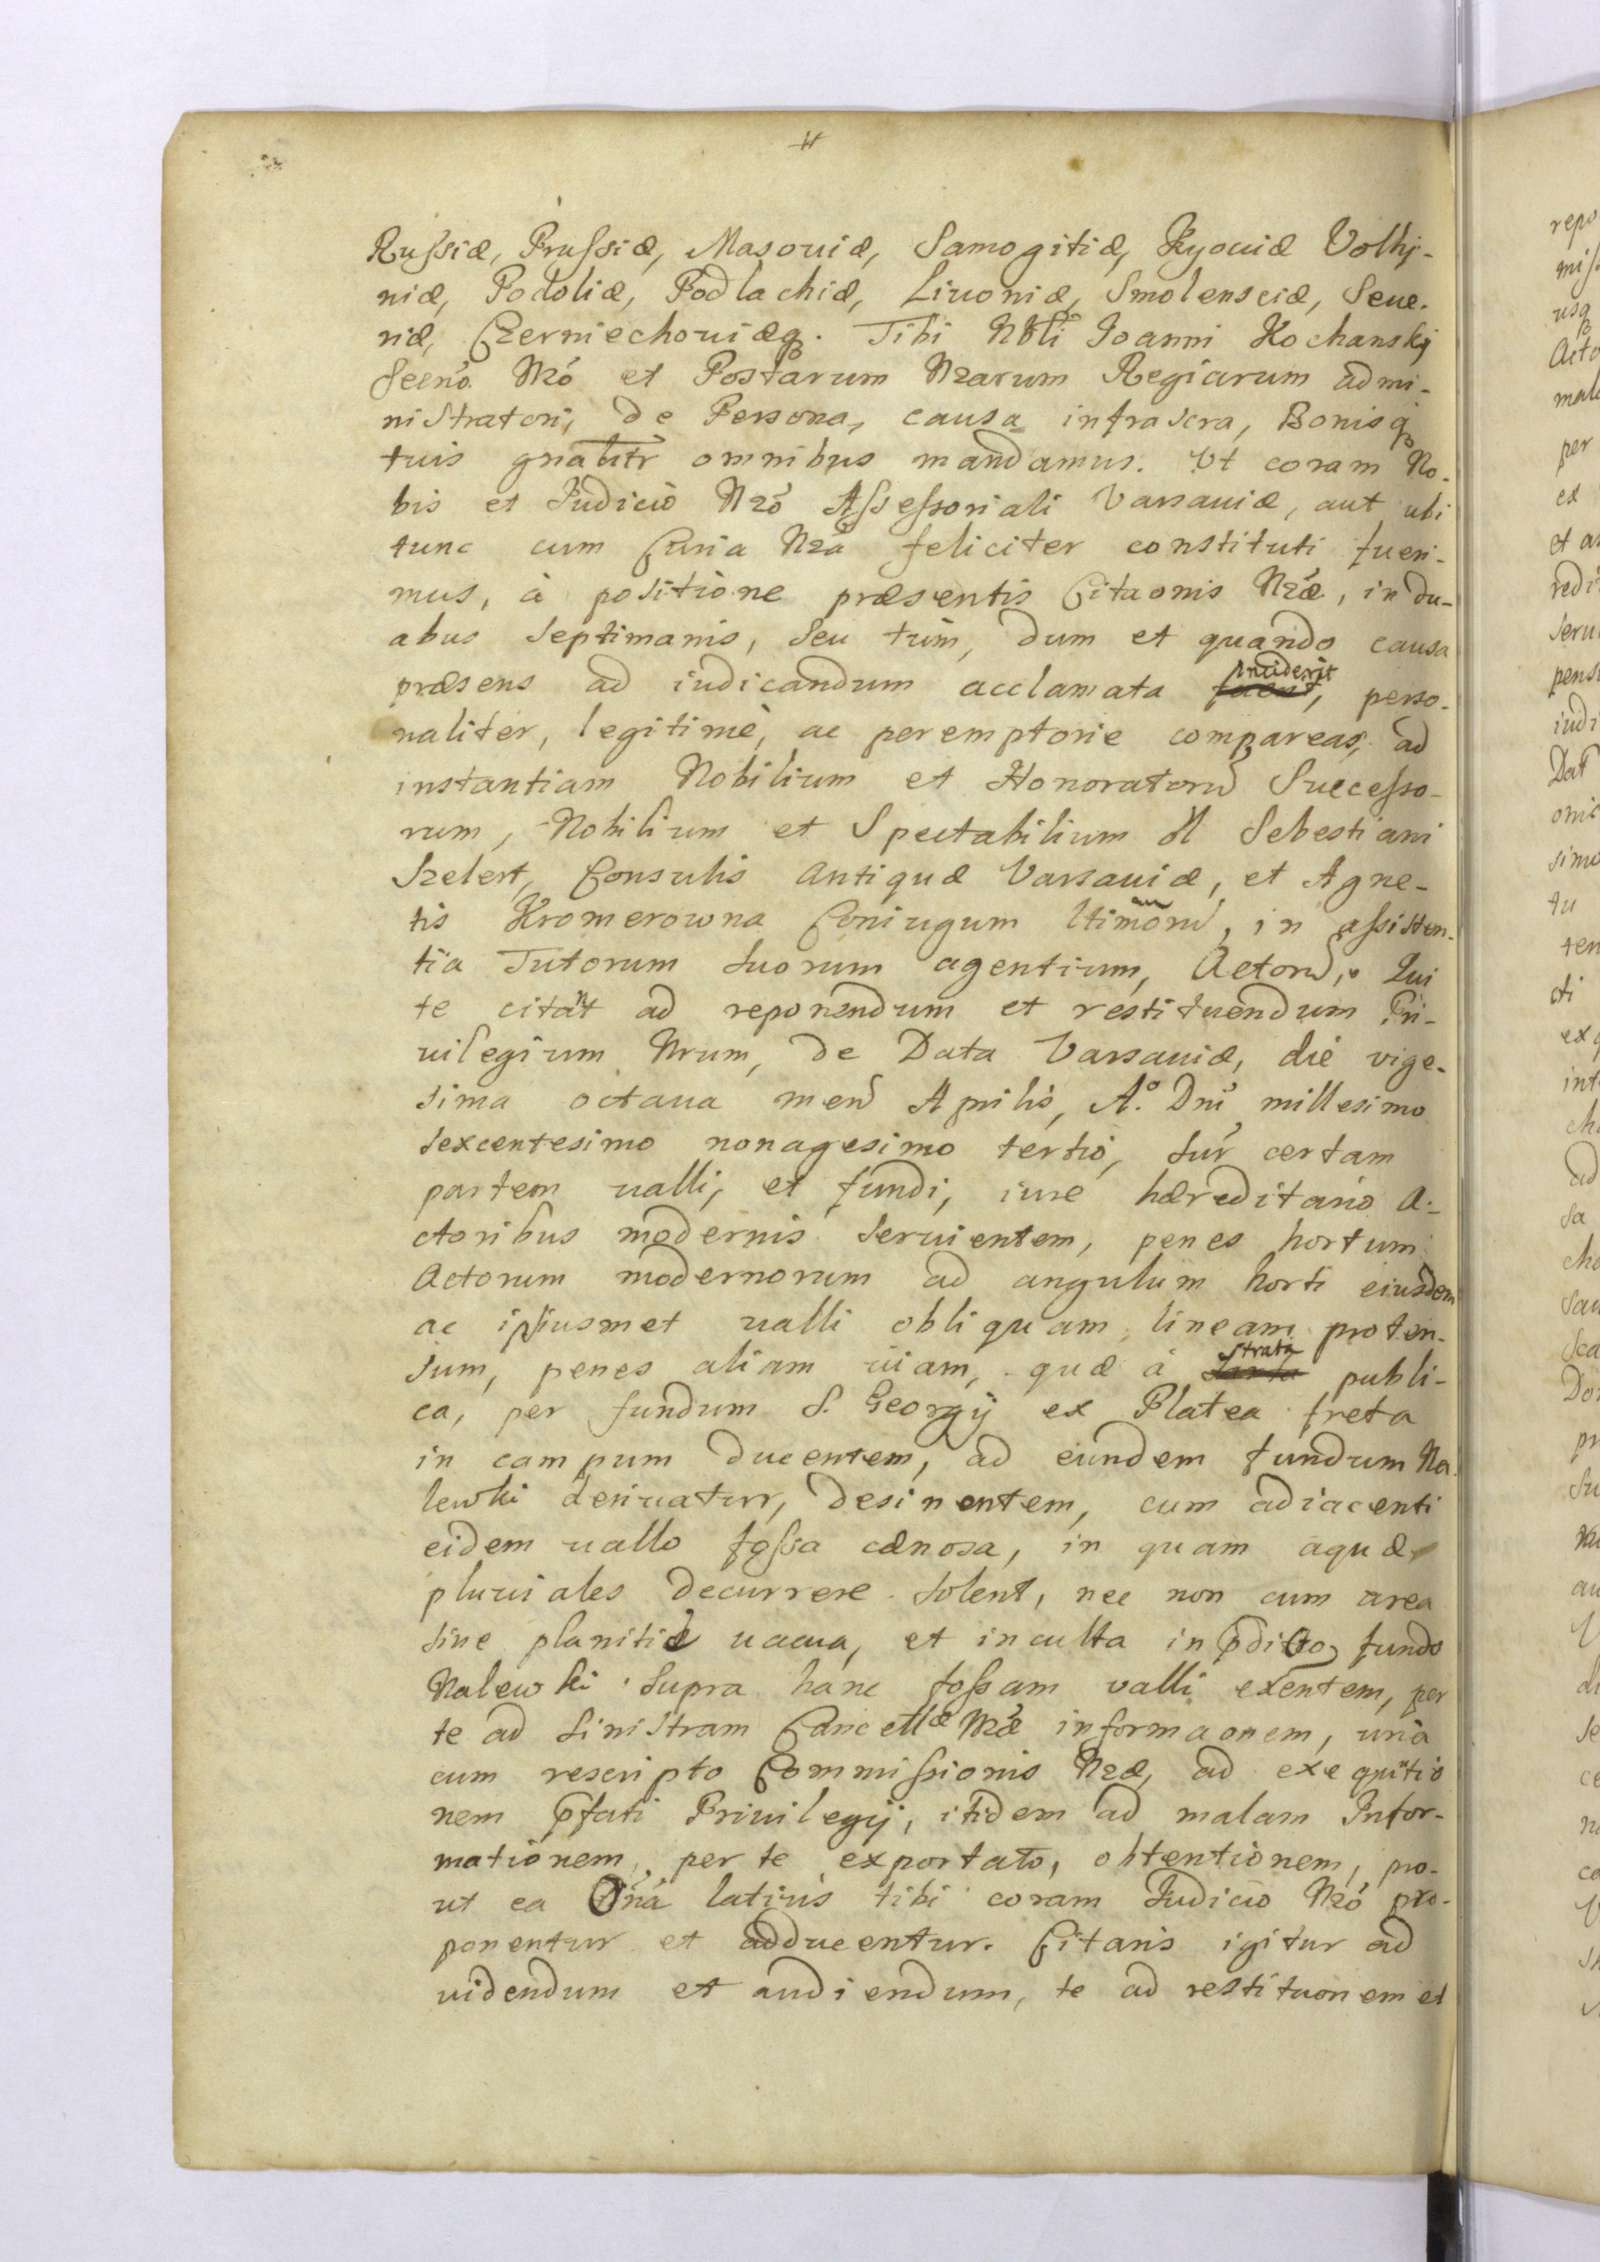 Russiæ, Prussiæ, Masouiæ, Samogitiæ, Kyouiæ Volhy-
niæ, Podoliæ, Podlachiæ, Liuoniæ, Smolensciæ, Seue-
riæ, Czerniechouiæq. Tibi Nbli Ioanni Kochansky
Secrio Nro et Postarum Nrarum Regiarum admi-
nistratori, de Persona, causa infrascra, Bonisq
tuis gnaliter omnibus mandamus. Vt coram No-
bis et Iudicio Nro Assessoriali Varsauiæ, aut ubi
tunc cum Curia Nra feliciter constituti fueri-
mus, à positione præsentis Citaonis Nræ, in du-
abus Septimanis, seu tùm, dum et quando causa
præsens ad iudicandum acclamata inciderit, perso-
naliter, legitimè, ac peremptorie compareas, ad
instantiam Nobilium et Honoratoru Successo-
rum, Nobilium et Spectabilium ol Sebestiani
Szelert, Consulis Antiquæ Varsauiæ, et Agne-
tis Kromerowna Coniugum ltimoru, in assisten-
tia Tutorum suorum agentium, Actoru, Qui
te citant ad reponendum et restituendum Pri-
uilegium Nrum, de Data Varsauiæ, die vige-
sima octaua men Aprilis, Ao. Dni millesimo
sexcentesimo nonagesimo tertio, sur certam
partem ualli, et fundi, iure hæreditario A-
ctoribus modernis seruientem, penes hortum
Actorum modernorum ad angulum horti eiusdem
ac ipsiusmet ualli obliquam lineam proten-
sum, penes aliam uiam, quæ à strata publi-
ca, per fundum S. Georgij ex Platea freta
in campum ducentem, ad eundem fundum Na-
lewki deriuatur, desinentem, cum adiacenti
eidem uallo fossa cænosa, in quam aquæ
pluuiales decurrere solent, nec non cum area
siue planitie uacua, et inculta in pdicto fundo
Nalewki supra hanc fossam valli exentem, per
te ad sinistram Cancellæ Nræ informaonem, unà
cum rescripto Commissionis Nræ, ad exequutio
nem pfati Priuilegij, itidem ad malam Infor-
mationem, per te exportato, obtentionem, pro-
ut ea Omnia latius tibi coram Iudicio Nro pro-
ponentur et adducentur. Citaris igitur ad
uidendum et audiendum, te ad restituonem et